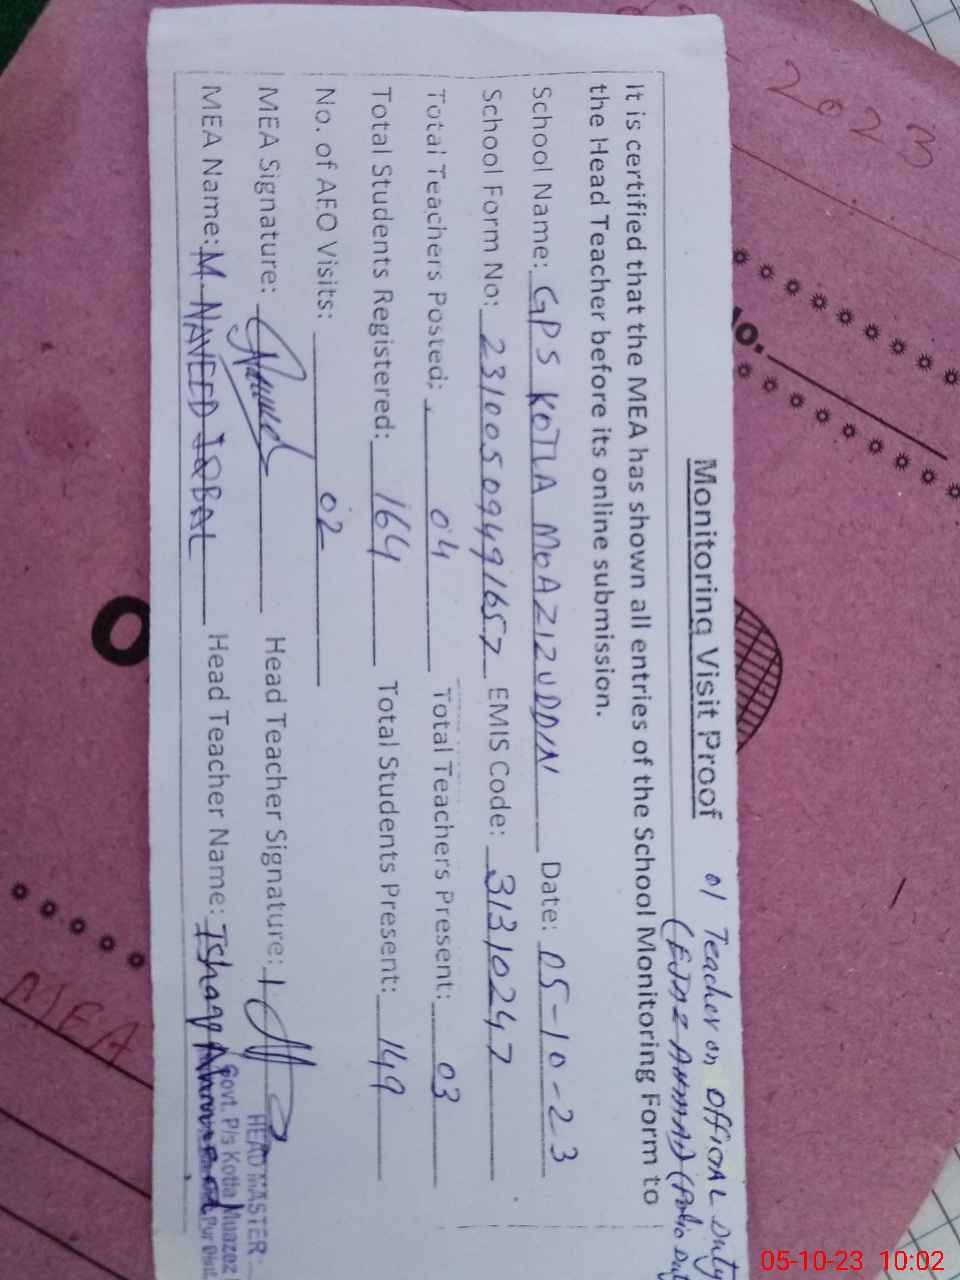 2023
No.
Monitoring Visit Proof
01 Teacher on OFFICAL Duty
(EJAZ AHMAD) (Polio Dut
It is certified that the MEA has shown all entries of the School Monitoring Form to
the Head Teacher before its online submission.
School Name: GPS KOTLA MOAZIZUDDIN Date: 05-10-23
School Form No: 23100509491657 EMIS Code: 31310247
Total Teachers Posted: 04 Total Teachers Present: 03
Total Students Registered: 164 Total Students Present: 149
No. of AEO Visits: 02
MEA Signature: Head Teacher Signature:
MEA Name: M NAVEED IQBAL Head Teacher Name: Ishaq Ahmad
HEAD MASTER
Govt. P/s Kotla Muazez
Pur Distt
MEA
05-10-23 10:02